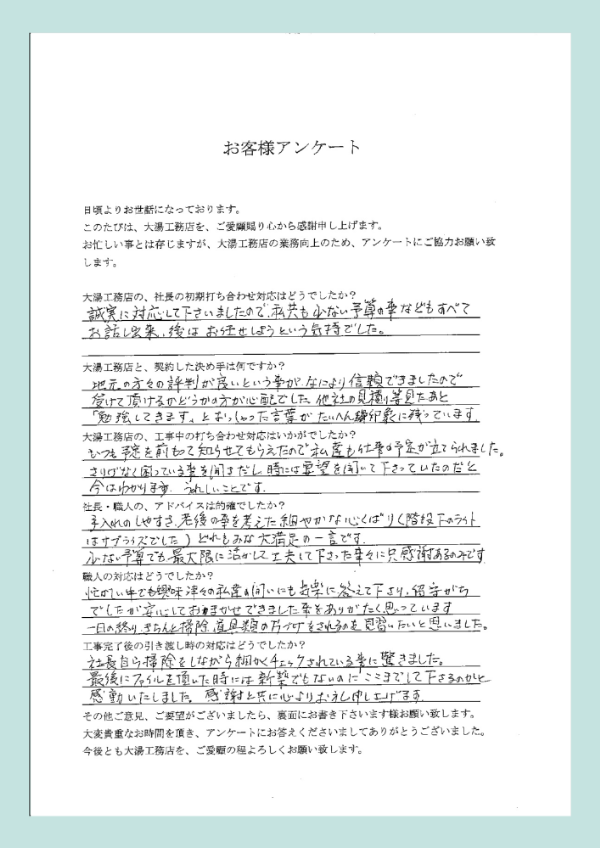 お客様アンケート
日頃よりお世話になっております。
このたびは、大湯工務店を、ご愛顧賜り心から感謝申し上げます。
お忙しい事とは存じますが、大湯工務店の業務向上のため、アンケートにご協力お願い致
します。
大湯工務店の、社長の初期打ち合わせ対応はどうでしたか？
誠実に対応して下さいましたので、私共も少ない予算の事などもすべて
お話し出来、後はお任せしようという気持でした。
大湯工務店と、契約した決め手は何ですか？
地元の方々の評判が良いという事が、なにより信頼できましたので
受けて頂けるかどうかの方が心配でした。他社の見積り等見たあと
「勉強してきます」とおっしゃった言葉がたいへん印象に残っています。
大湯工務店の、工事中の打ち合わせ対応はいかがでしたか？
いつも予定を前もって知らせてもらえたので私達も仕事の予定が立てられました。
さりげなく困っている事を聞きだし時には要望を聞いて下さっていたのだと
今はわかります。うれしいことです。
社長・職人の、アドバイスは的確でしたか？
手入れのしやすさ、老後の事を考えた細やかな心くばり（階段下のライト
はサプライズでした）どれもみな大満足の一言です。
少ない予算でも最大限に活かして工夫して下さった事々に只感謝あるのみです
職人の対応はどうでしたか？
忙がしい中でも興味津々の私達の問いにも気楽に答えて下さり、留守がち
でしたが安心しておまかせできました事をありがたく思っています
一日の終り、きちんと掃除、道具類の片づけをされるのを見習いたいと思いました。
工事完了後の引き渡し時の対応はどうでしたか？
社長自ら掃除をしながら細かくチェックされている事に驚きました。
最後にファイルを頂いた時には新築でもないのにここまでして下さるのかと
感動いたしました。感謝と共に心よりお礼申し上げます。
その他ご意見、ご要望がございましたら、裏面にお書き下さいます様お願い致します。
大変貴重なお時間を頂き、アンケートにお答えくださいましてありがとうございました。
今後とも大湯工務店を、ご愛顧の程よろしくお願い致します。